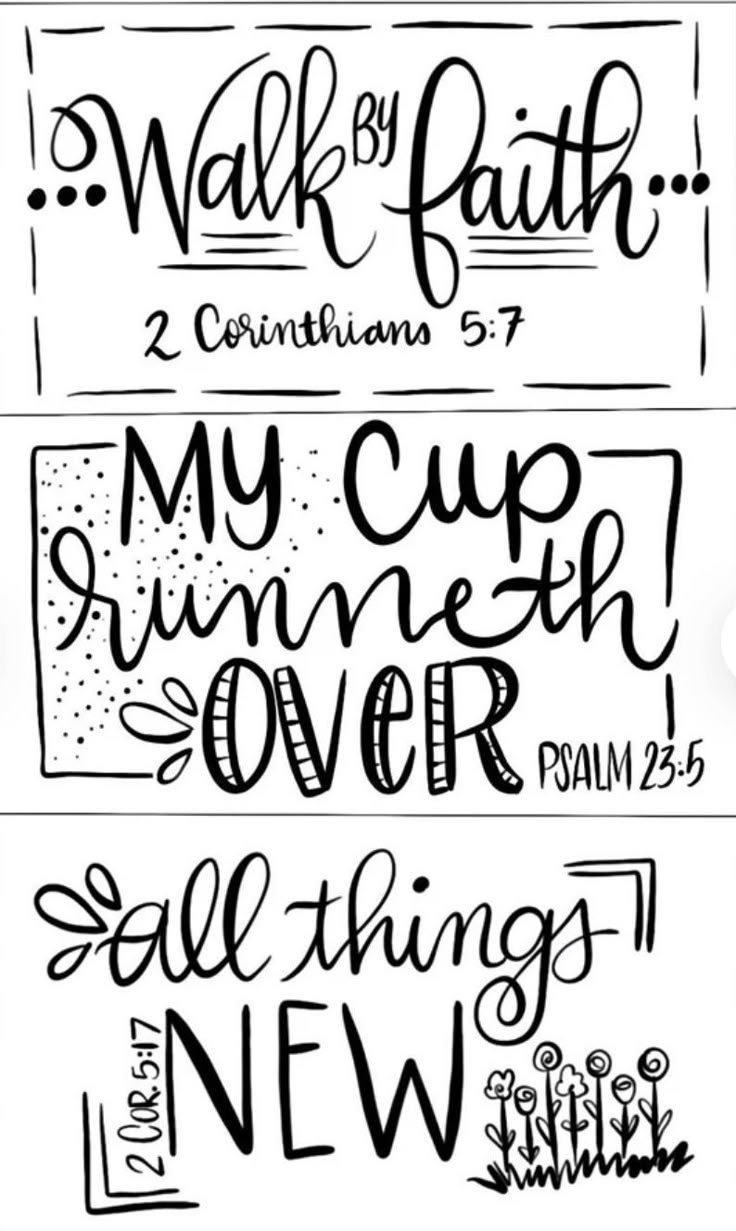 Walk BY faith
2 Corinthians 5:7
MY Cup
runneth
OVeR
PSALM 23:5
all things
NEW
2 COR. 5:17